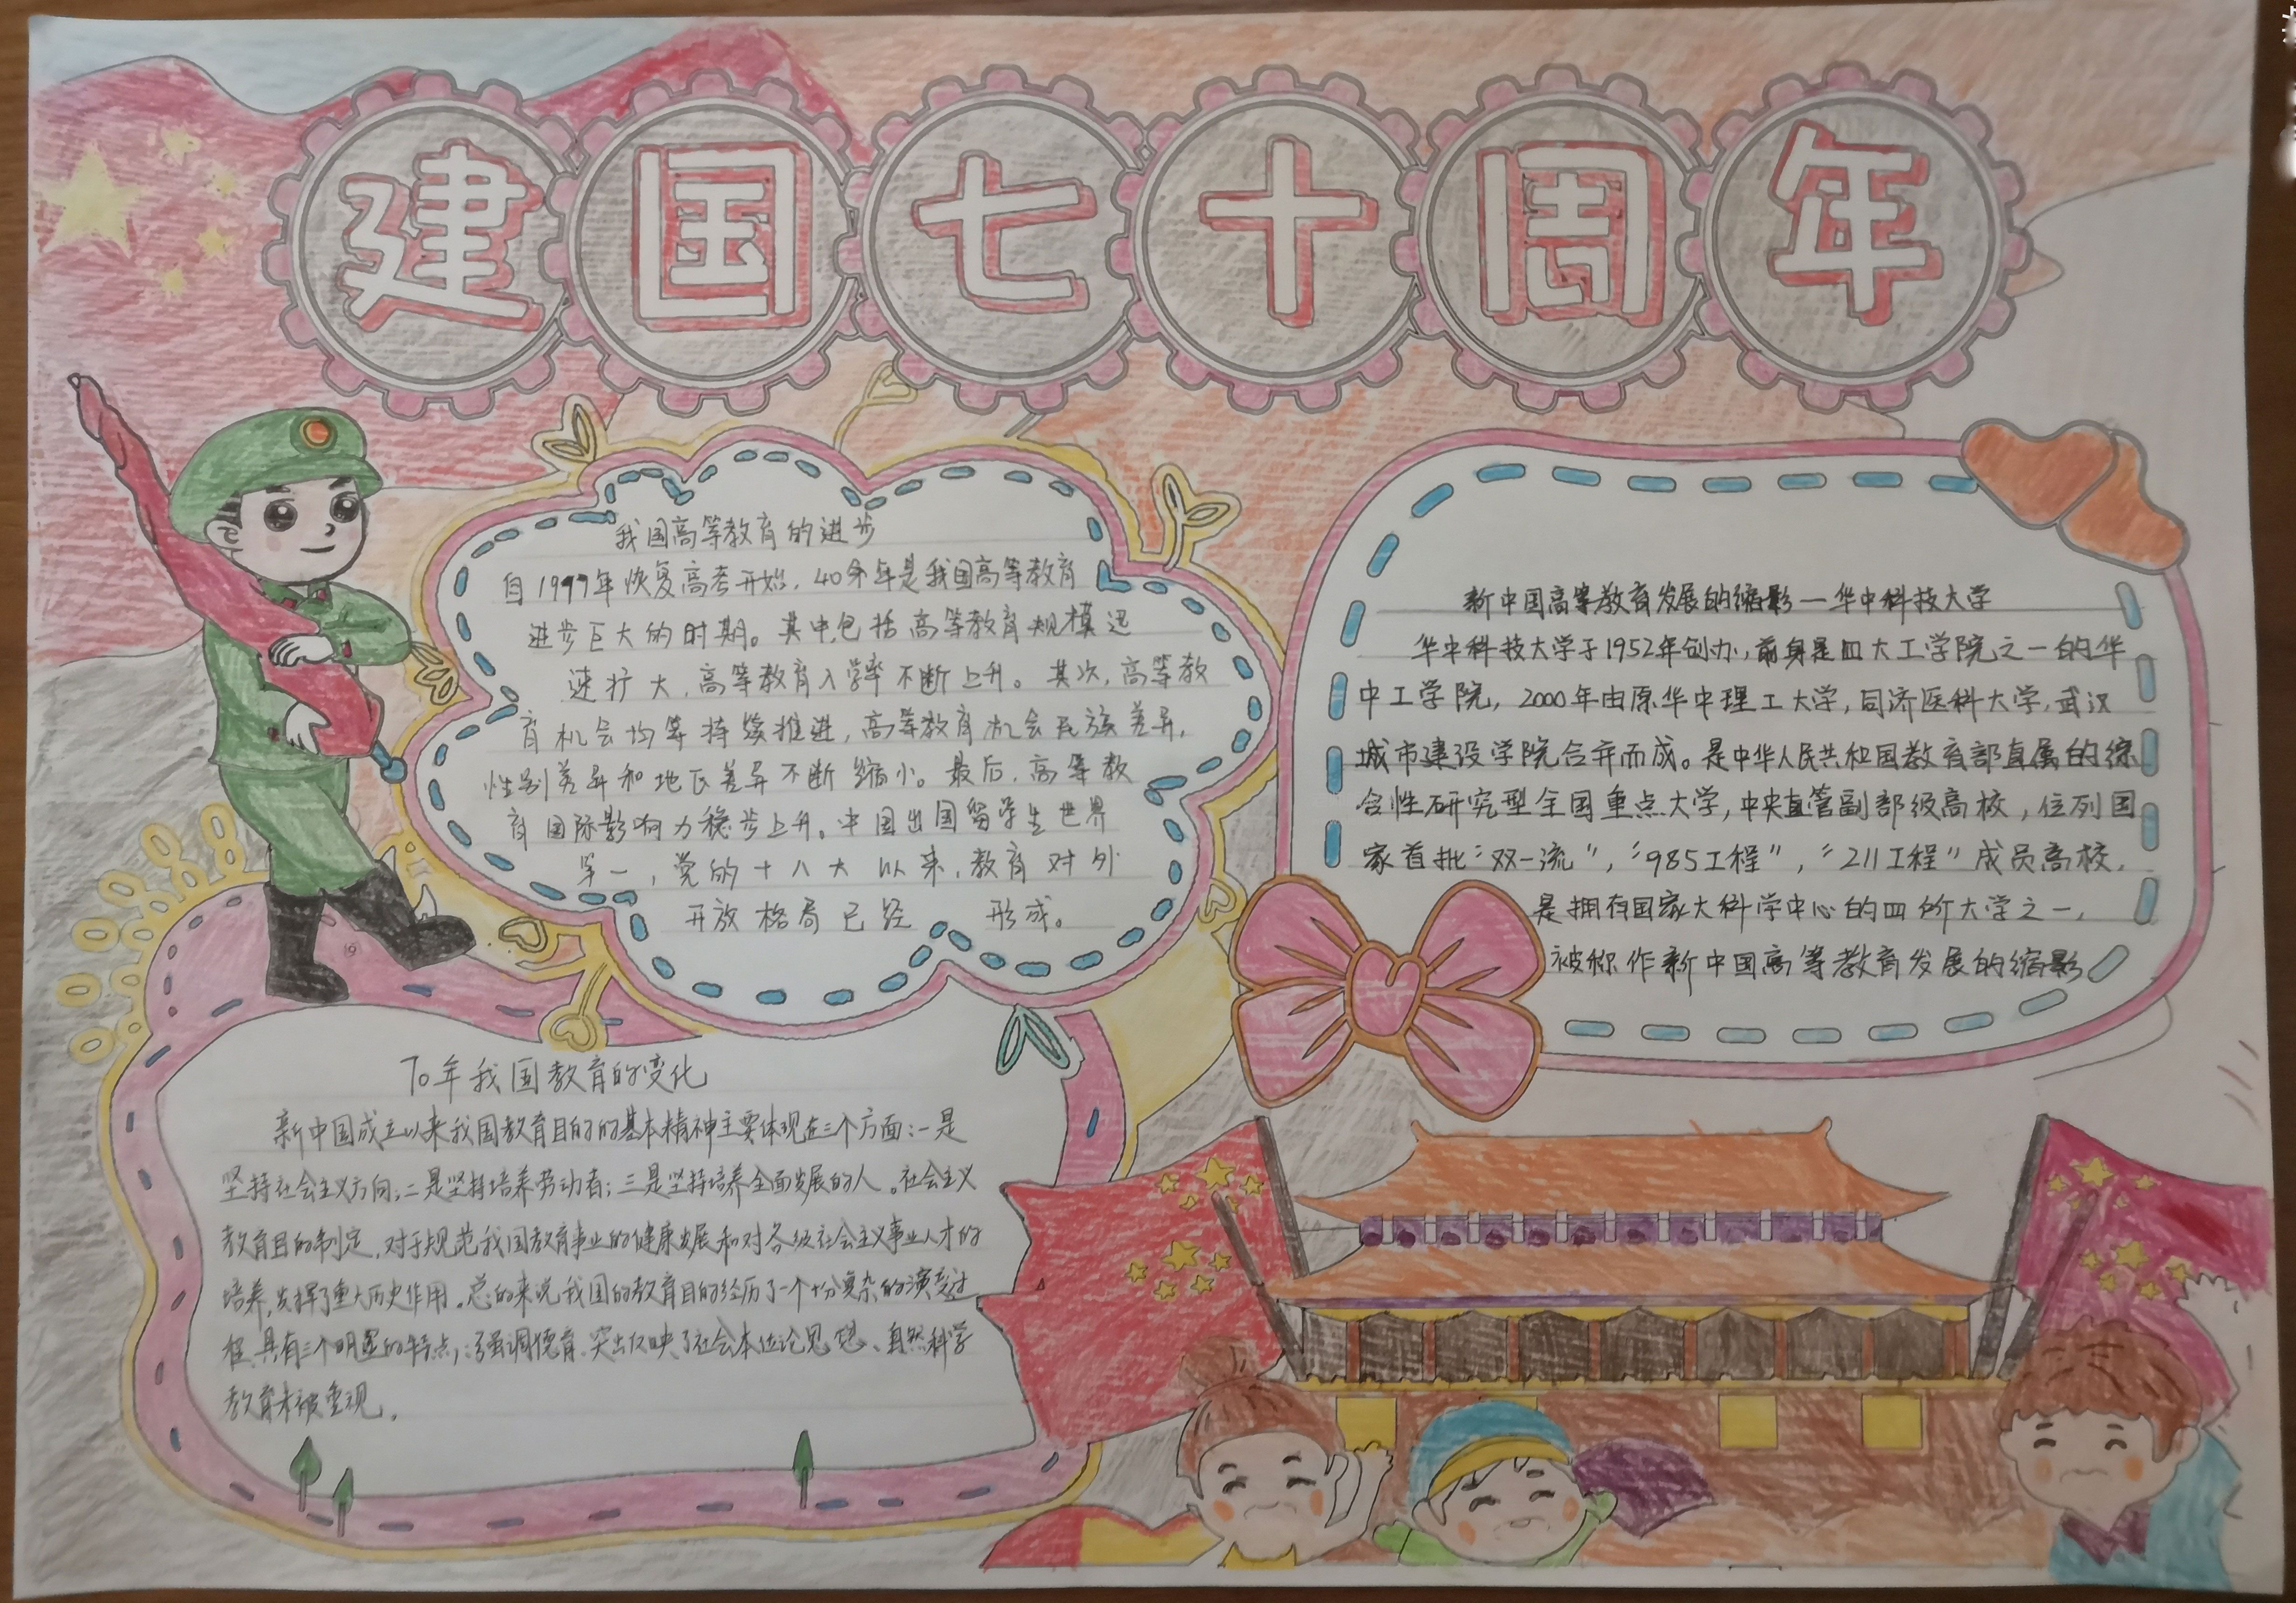 建国七十周年
我国高等教育的进步
自1977年恢复高考开始，40余年是我国高等教育
进步巨大的时期。其中包括高等教育规模迅
速扩大，高等教育入学率不断上升。其次，高等教
育机会均等持续推进，高等教育机会民族差异，
性别差异和地区差异不断缩小。最后，高等教
育国际影响力稳步上升。中国出国留学生世界
第一，党的十八大以来，教育对外
开放格局已经形成。
新中国高等教育发展的缩影—华中科技大学
华中科技大学于1952年创办，前身是四大工学院之一的华
中工学院，2000年由原华中理工大学，同济医科大学，武汉
城市建设学院合并而成。是中华人民共和国教育部直属的综
合性研究型全国重点大学，中央直管副部级高校，位列国
家首批“双一流”，“985工程”，“211工程”成员高校，
是拥有国家大科学中心的四所大学之一，
被称作新中国高等教育发展的缩影
70年我国教育的变化
新中国成立以来我国教育目的的基本精神主要体现在三个方面：一是
坚持社会主义方向；二是坚持培养劳动者；三是坚持培养全面发展的人。社会主义
教育目的制定，对于规范我国教育事业的健康发展和对各级社会主义事业人才的
培养，发挥了重大历史作用。总的来说我国的教育目的经历了一个十分复杂的演变过
程，具有三个明显的特点，强调德育、突出反映了社会本位论思想、自然科学
教育未被重视。